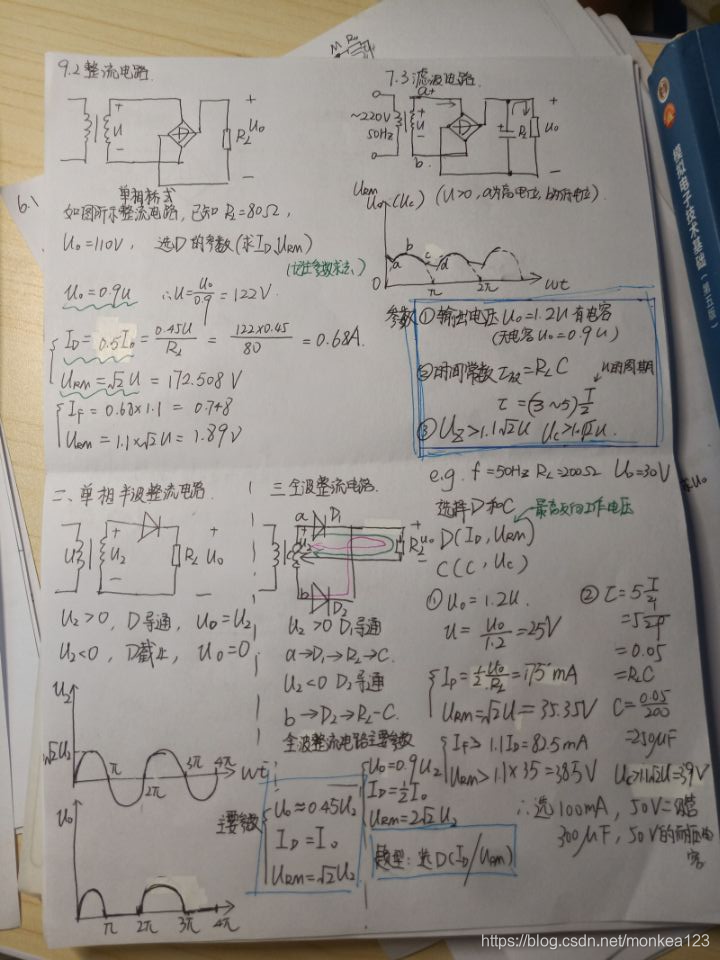 9.2整流电路.
U
RL
Uo
单相桥式
如图所示整流电路,已知 RL=80Ω,
Uo=110V, 选D的参数(求ID、URM)
(记住参数求法)
Uo=0.9U ∴U=Uo/0.9=122V
ID=0.5Io=0.45U/RL=122×0.45/80=0.68A.
URM=√2U=172.508V
If=0.68×1.1=0.748
URM=1.1×√2U=1.89V
7.3 滤波电路.
~220V
50Hz
a+
U
b
RL
Uo
Uo(Uc)
URM
0
a b c d
π 2π wt
参数①输出电压Uo=1.2U 有电容
(无电容Uo=0.9U)
②时间常数τ放=RLC
τ=(3~5)T/2
U的周期
e.g. f=50Hz RL=200Ω Uo=30V
选择D和C
最高反向工作电压
D(ID,URM)
C(C,Uc)
①Uo=1.2U.
U=Uo/1.2=25V
ID=1/2 Uo/RL=75mA
URM=√2U=35.35V
If>1.1ID=82.5mA
URM>1.1×35=38.5V
=0.05
=RLC
C=0.05/200
=250μF
Uc>1.1√2U=39V
∴选100mA,50V=
300μF,50V的
二、单相半波整流电路.
U
U2
RL
Uo
U2>0,D导通,UD=U2
U2<0,D截止,Uo=0
U2
√2U2
π 2π 3π 4π wt
Uo
π 2π 3π 4π
主要参数
Uo≈0.45U2
ID=Io
URM=√2U2
三全波整流电路.
a D1
b D2
RL
Uo
U2>0 D1导通
a→D1→RL→C.
U2<0 D2导通
b→D2→RL-C.
全波整流电路主要参数
Uo=0.9U2
ID=1/2Io
URM=2√2U2
题型:选D(ID/URM)
模拟电子技术基础(第五版)
6.1
https://blog.csdn.net/monkea123